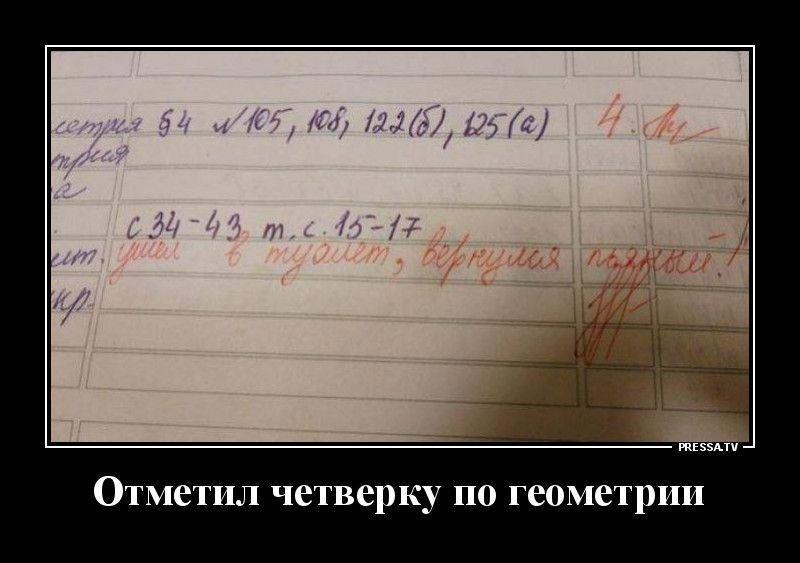 сетрия §4 №105, 108, 122(б), 125(а) 4.
трия
а
с 34-43 т. с. 15-17
ит. ушел в туалет, вернулся пьяный!
кр.
PRESSA.TV
Отметил четверку по геометрии